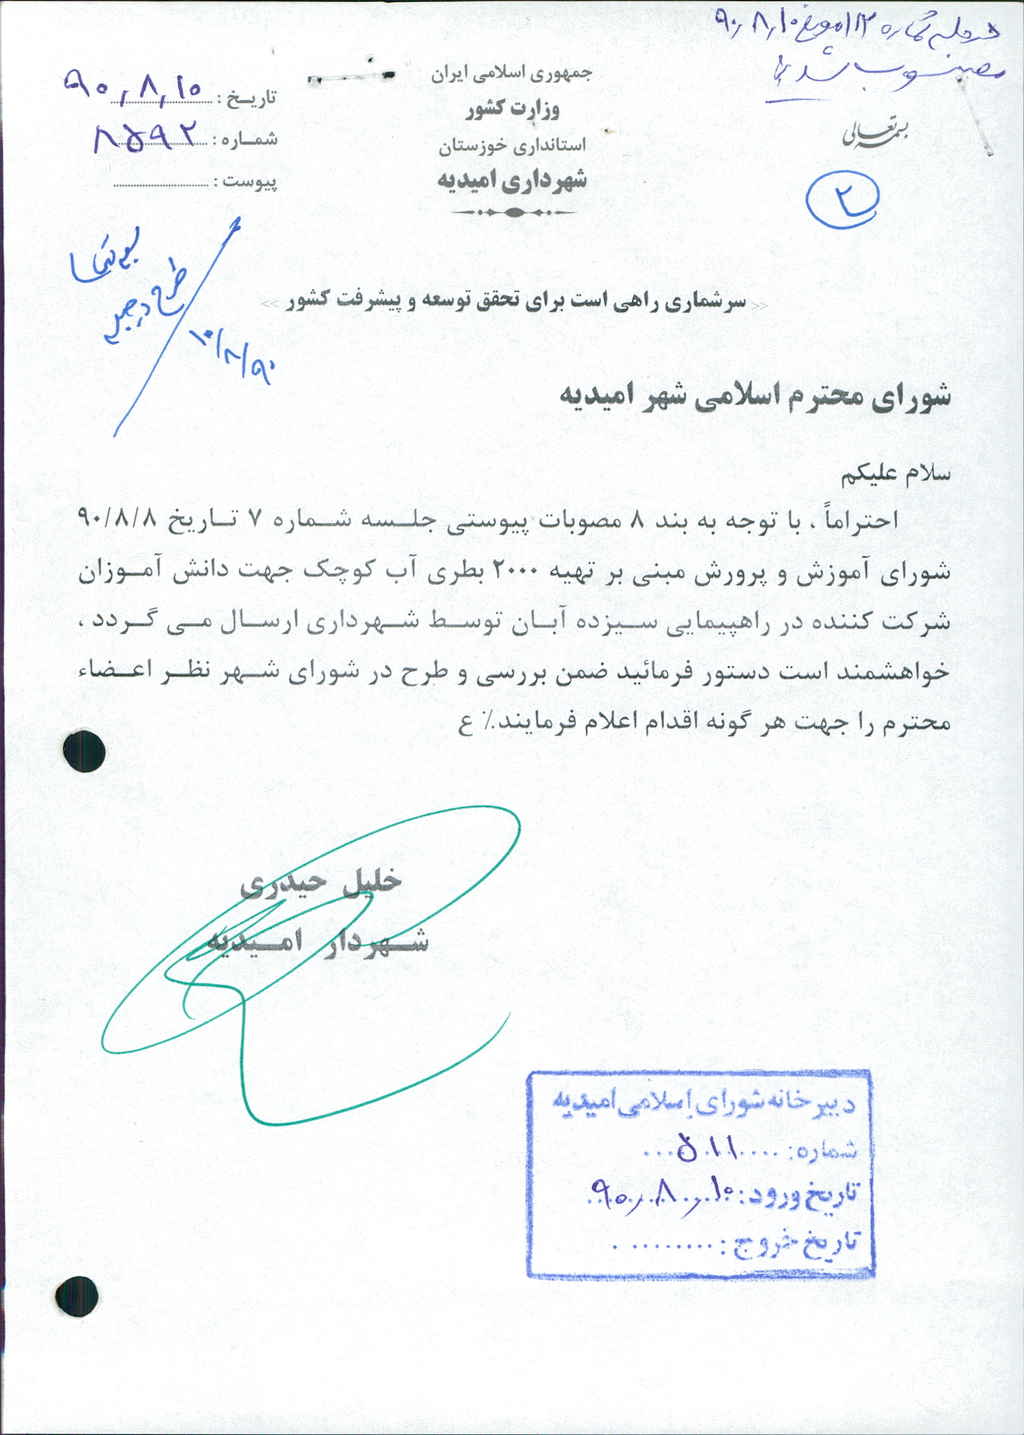 در جلسه شماره ۱۱۲ مورخ ۹۰,۸,۱۰
مصوب شد
بسمه تعالی
۲
جمهوری اسلامی ایران
وزارت کشور
استانداری خوزستان
شهرداری امیدیه
تاریخ : ۹۰,۸,۱۰
شماره : ۸۵۹۲
پیوست :
طرح در جلسه
۹۰/۸/۱۰
<< سرشماری راهی است برای تحقق توسعه و پیشرفت کشور >>
شورای محترم اسلامی شهر امیدیه
سلام علیکم
احتراماً ، با توجه به بند ۸ مصوبات پیوستی جلسه شماره ۷ تاریخ ۹۰/۸/۸
شورای آموزش و پرورش مبنی بر تهیه ۲۰۰۰ بطری آب کوچک جهت دانش آموزان
شرکت کننده در راهپیمایی سیزده آبان توسط شهرداری ارسال می گردد ،
خواهشمند است دستور فرمائید ضمن بررسی و طرح در شورای شهر نظر اعضاء
محترم را جهت هر گونه اقدام اعلام فرمایند.٪ ع
خلیل حیدری
شهردار امیدیه
دبیرخانه شورای اسلامی امیدیه
شماره: ۵۱۱
تاریخ ورود: ۹۰,۸,۱۰
تاریخ خروج :